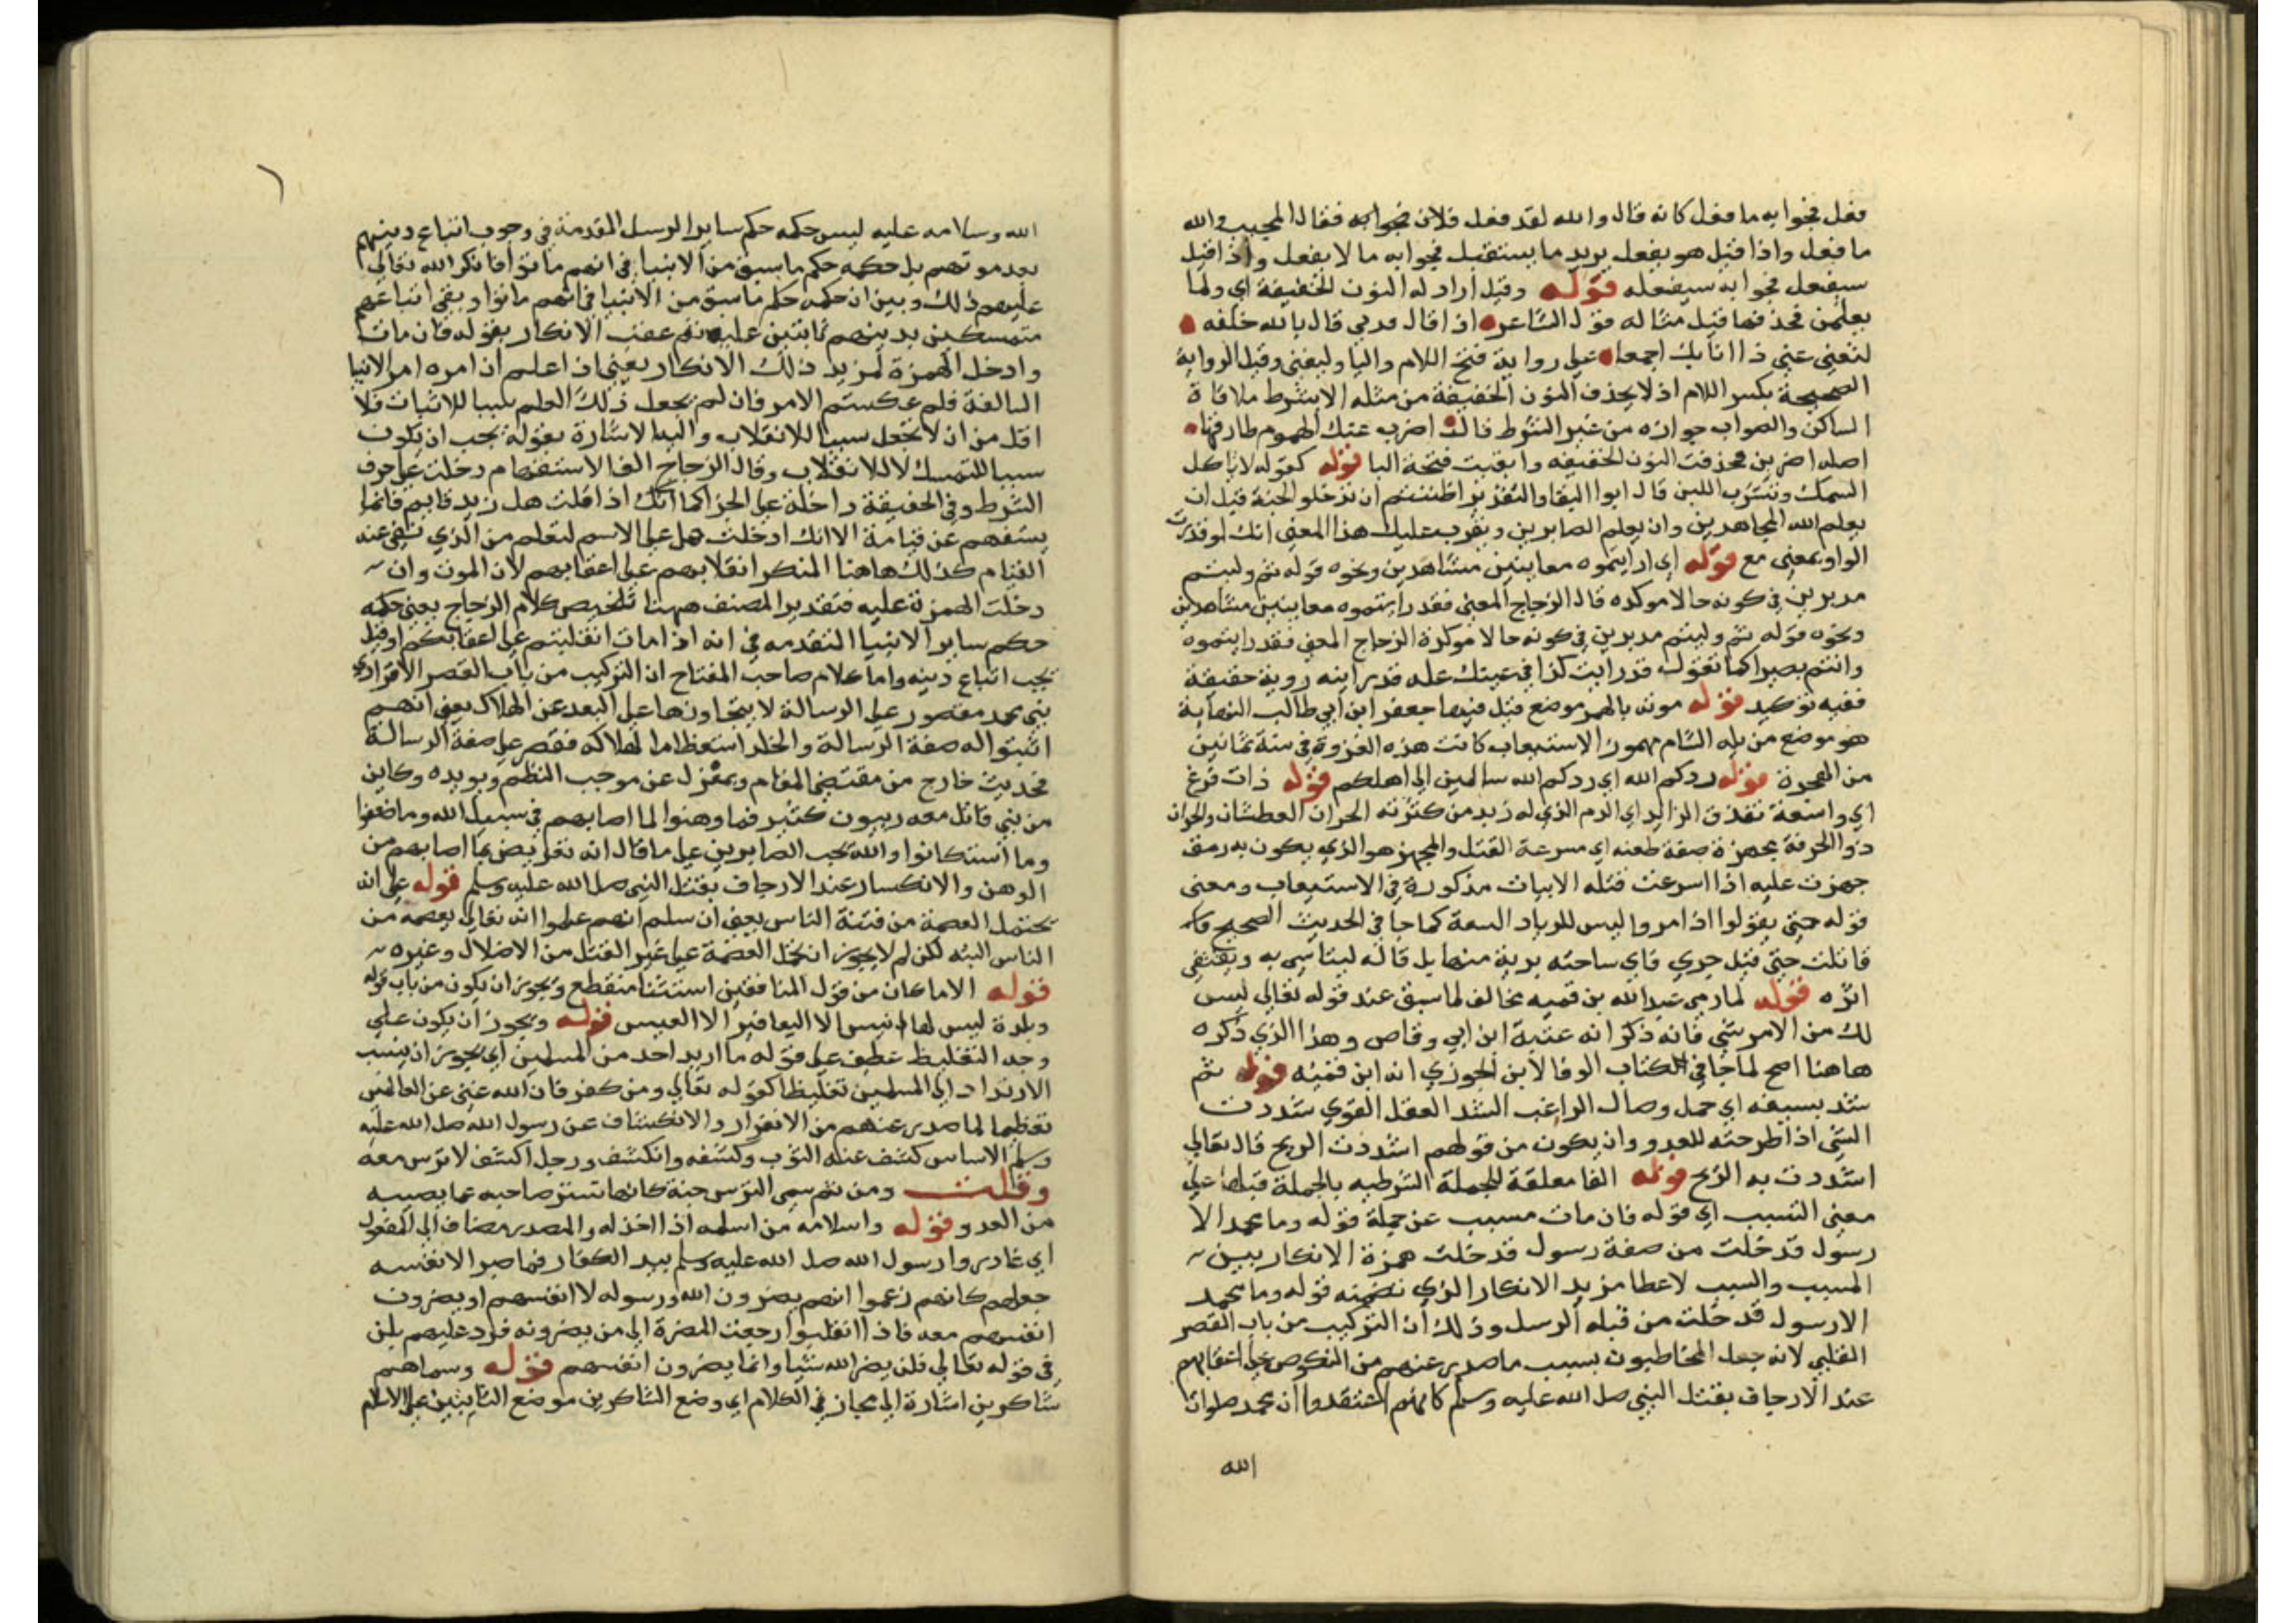 فعل فجوابه ما فعل كانه قال والله لقد فعل فلان فجوابه فقال المجيب والله
ما فعل واذا قيل هو يفعل يريد ما يستقبل فجوابه ما لا يفعل واذا قيل
سيفعل فجوابه سيفعله قوله وقيل اراد له النون الخفيفة اي ولما
يعلمن فحذفها قيل مثاله قول الشاعر اذا قال قدني قال بالله حلفه
لتغني عني ذا انائك اجمعا علي رواية فتح اللام واليا وليغني وقيل الرواية
الصحيحة بكسر اللام اذ لا يحذف النون الخفيفة من مثله الا بشرط ملاقاة
الساكن والصواب جوازه من غير الشرط قال اضرب عنك الهموم طارقها
اصله اضربن فحذفت النون الخفيفه وابقيت فتحة البا قوله كقوله لا تاكل
السمك وتشرب اللبن قال ابوا البقا والتقدير اظننتم ان تدخلو الجنة قبل ان
يعلم الله المجاهدين وان يعلم الصابرين ويقرب عليك هذا المعني انك لو قدرت
الواو بمعني مع قوله اي رايتموه معاينين مشاهدين ونحوه قوله ثم وليتم
مدبرين في كونه حالا موكده قال الزجاج المعني فقد رايتموه معاينين مشاهدين
ونحوه قوله ثم وليتم مدبرين في كونه حالا موكدة الزجاج المعني فقد رايتموه
وانتم بصرا كما تقول قد رايت كذا في عينك عله قد رايته روية حقيقة
ففيه توكيد قوله موته بالهمز موضع قتل فيها جعفر ابن ابي طالب النهاية
هو موضع من بلد الشام مهموز الاستيعاب كانت هذه الغزوة في سنة ثمانين
من الهجرة قوله ردكم الله اي ردكم الله سالمين الي اهلكم قوله ذات فرغ
اي واسعة تقذف الزابد اي الدم الذي له زبد من كثرته الحران العطشان والحران
ذو الحرقة مجهزة صفة طعنه اي مسرعة القتل والمجهز هو الذي يكون به رمق
جهزت عليه اذا اسرعت قتله الابيات مذكورة في الاستيعاب ومعني
قوله حتي يقولوا اذا مروا ليس للرياد السعة كما جا في الحديث الصحيح قا
قاتلت حتي قيل جري فاي ساحته برية منها بل قاله ليتاسي به ويقتفي
اثره قوله لما رمي عبد الله بن قميه مخالف لما سبق عند قوله تعالي ليس
لك من الامر شي فانه ذكر انه عتبة ابن ابي وقاص وهذا الذي ذكره
هاهنا اصح لما جا في الكتاب الوفا لابن الجوزي انه ابن قميئه قوله ثم
شد بسيفه اي حمل وصال الراغب الشد العقل القوي شددت
الشي اذا طرحته للعدو وان يكون من قولهم اشتدت الريح قال تعالي
اشتدت به الريح قوله الفا معلقة للجملة الشرطيه بالجملة قبلها علي
معني التسبب اي قوله فان مات مسبب عن جملة قوله وما محمد الا
رسول قد خلت من صفة رسول قد خلت همزة الانكار بين
المسبب والسبب لاعطا مزيد الانكار الذي تضمنه قوله وما محمد
الا رسول قد خلت من قبله الرسل وذلك ان التركيب من باب القصر
القلبي لانه جعل المخاطبون بسبب ما صدر عنهم من النكوص علي اعقابهم
عند الارجاف بقتل النبي صل الله عليه وسلم كانهم اعتقدوا ان محمد صلوات
الله
الله وسلامه عليه ليس حكمه حكم ساير الرسل المقدمة في وجوب اتباع دينهم
بعد موتهم بل حكمه حكم ما سبق من الانبيا في انهم ماتوا فانكر الله تعالي
عليهم ذلك وبين ان حكمه حكم ما سبق من الانبيا في انهم ماتوا وبقي اتباعهم
متمسكين بدينهم ثابتين عليه ثم عقب الانكار بقوله فان مات
وادخل الهمزة لمزيد ذلك الانكار يعني اذا علم ان امره امر الانبيا
السالفة فلم عكستم الامر فان لم يجعل ذلك العلم سببا للاثبات فلا
اقل من ان لا يجعل سببا للانقلاب واليه الاشارة بقوله يجب ان يكون
سببا للتمسك لا للانقلاب وقال الزجاج الف الاستفهام دخلت علي حرف
الشرط وفي الحقيقة داخلة علي الجزا كما انك اذا قلت هل زيد قايم فانما
يستفهم عن قيامة الا انك ادخلت هل علي الاسم لتعلم من الذي تنفي عنه
القيام كذلك هاهنا المنكر انقلابهم علي اعقابهم لان الموت وان
دخلت الهمزة عليه فتقدير المصنف ههنا تلخيص كلام الزجاج يعني حكمه
حكم ساير الانبيا المتقدمه في انه اذا مات انقلبتم علي اعقابكم او قتل
يجب اتباع دينه واما كلام صاحب المفتاح ان التركيب من باب القصر الافرادي
يني محمد مقصور علي الرسالة لا يتجاوزها علي البعد عن الهلاك يعني انهم
اثبتوا له صفة الرسالة والخلد استعظاما لهلاكه فقصر علي صفة الرسالة
فحديث خارج من مقتضي المقام وبمعزل عن موجب النظم ويويده وكاين
من نبي قاتل معه ربيون كثير فما وهنوا لما اصابهم في سبيل الله وما ضعفوا
وما استكانوا والله يحب الصابرين علي ما قال انه تعريض بما اصابهم من
الوهن والانكسار عند الارجاف بقتل النبي صل الله عليه وسلم قوله علي انه
يحتمل العصمة من فتنة الناس يعني ان سلم انهم علموا انه تعالي يعصمه من
الناس البته لكن لم لا يجوز ان تحمل العصمة علي غير القتل من الاضلال وغيره
قوله الا ما كان من قول المنافقين استثنا منقطع ويجوز ان يكون من باب قوله
وبلدة ليس لها انيس الا اليعافير الا العيس قوله ويجوز ان يكون علي
وجه التغليظ عطف علي قوله ما اريد احد من المسلمين اي يجوز ان ينسب
الارتداد الي المسلمين تغليظا كقوله تعالي ومن كفر فان الله غني عن العالمين
تعظيما لما صدر عنهم من الانفرار والانكشاف عن رسول الله صل الله عليه
وسلم الاساس كشف عنه الثوب وكشفه وانكشف ورجل اكشف لا ترس معه
وقلت ومن ثم سمي الترس جنة كانها تستر صاحبه عما يصيبه
من العدو قوله واسلامه من اسلمه اذا اخذله والمصدر مضاف الي المفعول
اي غادروا رسول الله صل الله عليه وسلم بيد الكفار فما ضر الا نفسه
جعلهم كانهم زعموا انهم يضرون الله ورسوله لا انفسهم او يضرون
انفسهم معه فاذا انقلبوا رجعت المضرة الي من يضرونه فرد عليهم بلن
في قوله تعالي فلن يضر الله شيا وانما يضرون انفسهم قوله وسماهم
شاكرين اشارة الي مجاز في الكلام اي وضع الشاكرين موضع الثابتين علي الاسلام